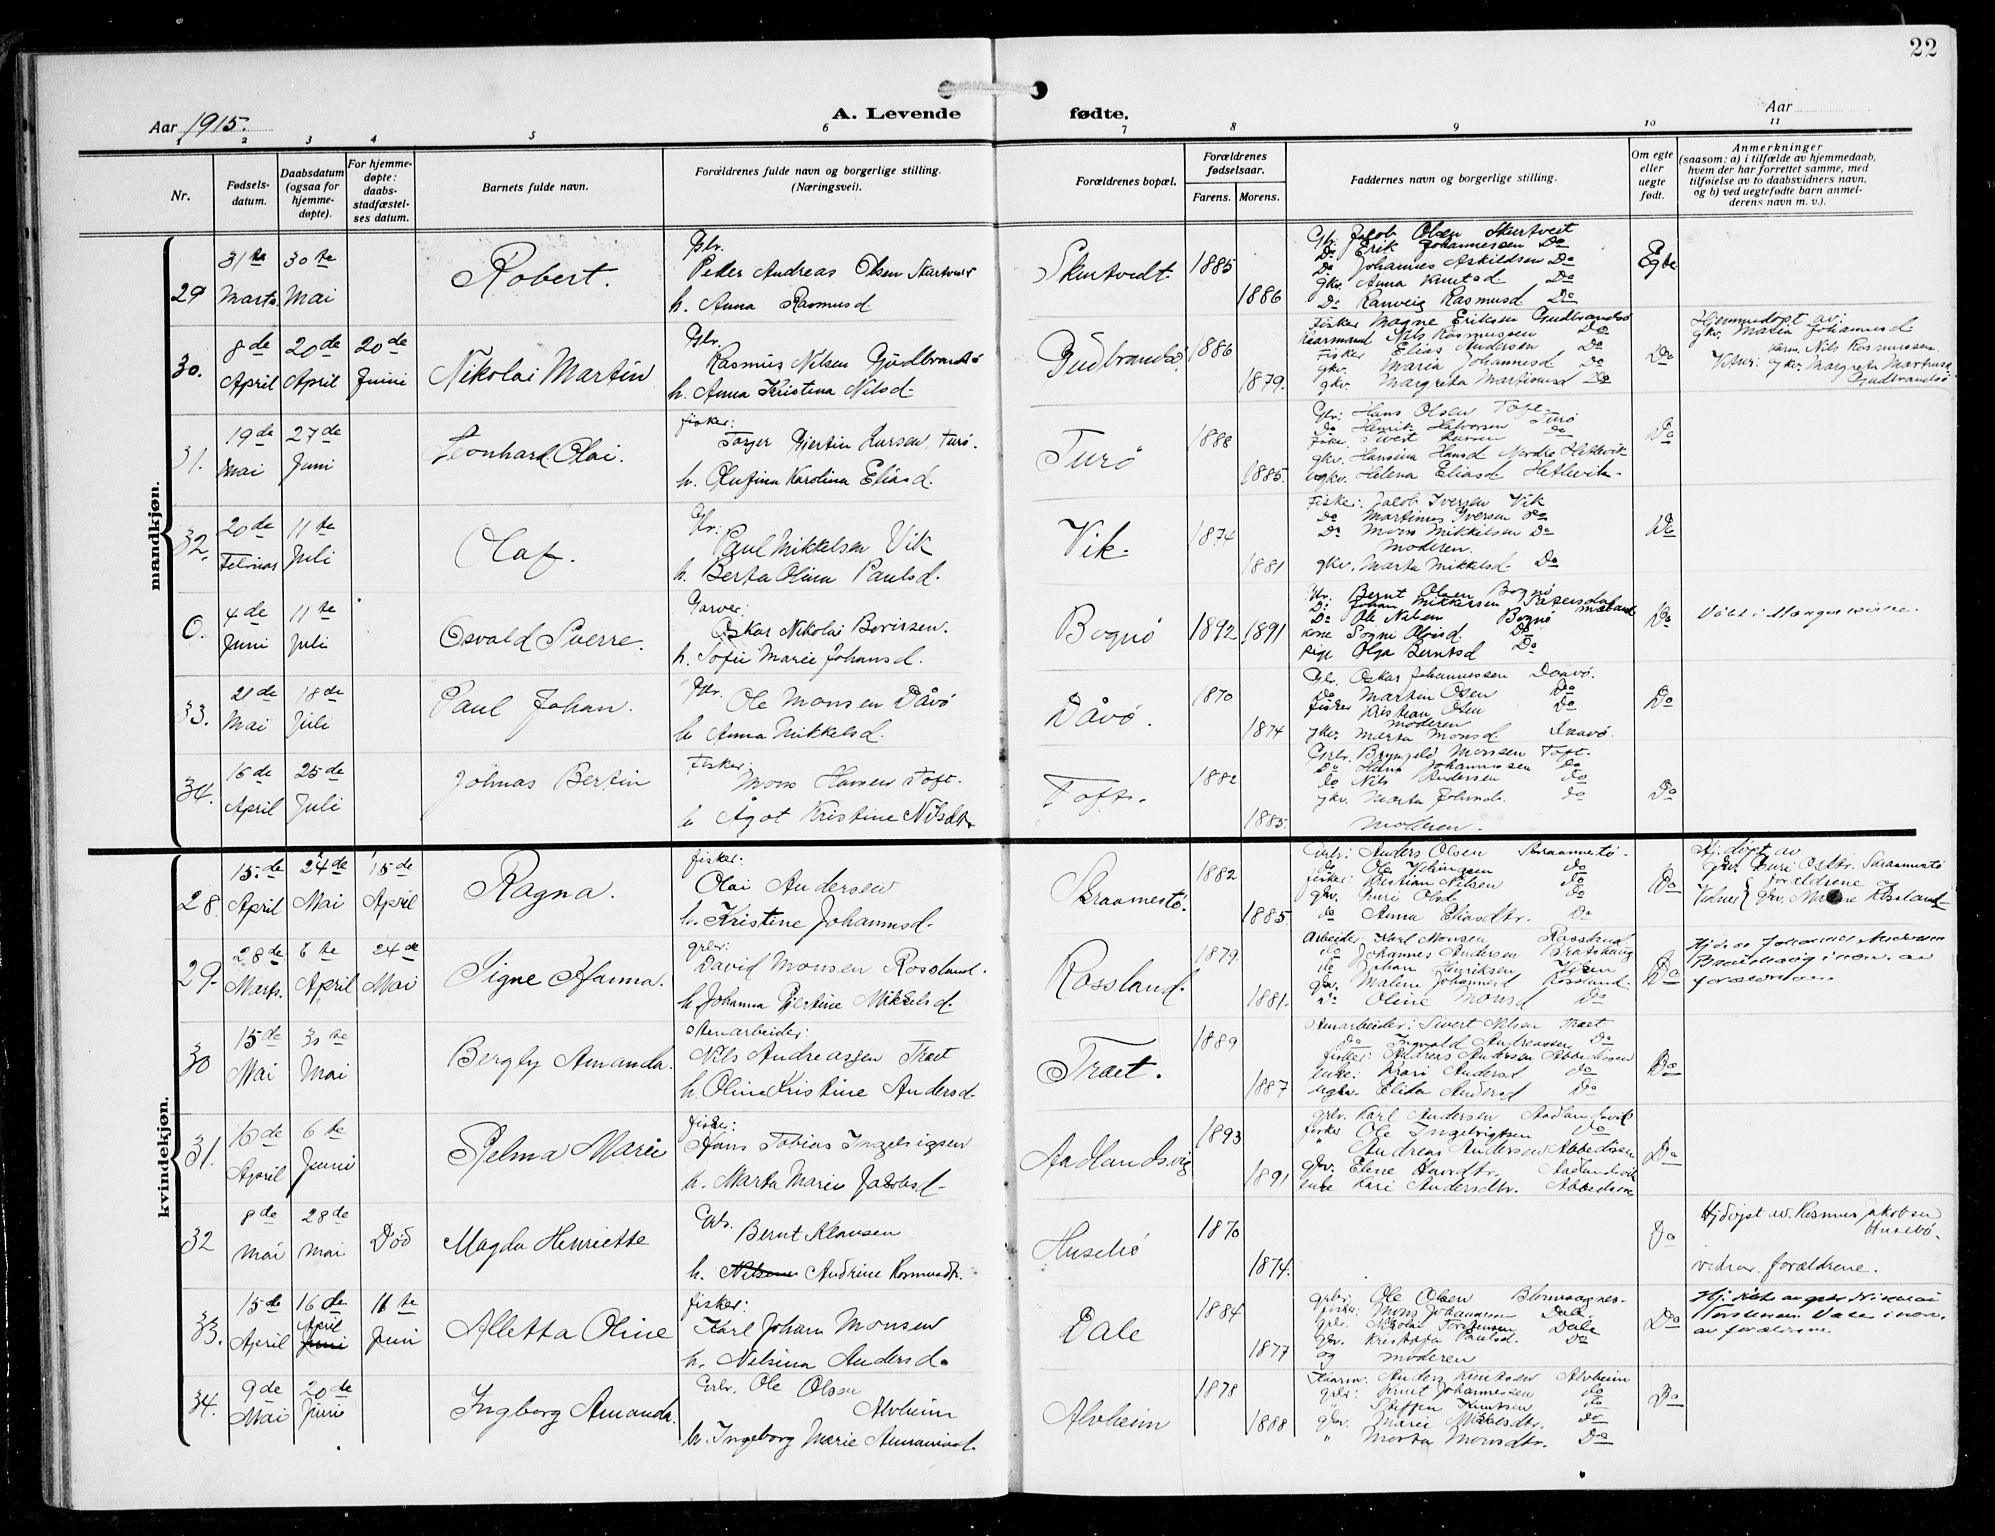 22
Aar 1915.
A. Levende fødte.
Aar
1 2 3 4 5 6 7 8 9 10 11
Nr.
Fødsels-
datum.
Daabsdatum
(ogsaa for
hjemme-
døpte).
For hjemme-
døpte:
daabs-
stadfæstel-
ses datum.
Barnets fulde navn.
Forældrenes fulde navn og borgerlige stilling.
(Næringsvei).
Forældrenes bopæl.
Forældrenes
fødselsaar.
Farens. Morens.
Faddernes navn og borgerlige stilling.
Om egte
eller
uegte
født.
Anmerkninger
(saasom: a) i tilfælde av hjemmedaab,
hvem der har forrettet samme, med
tilføielse av to daabsvidners navn,
og b) ved uegtefødte barn anmel-
derens navn m. v.).
mandkjøn.
29 31te Marts 30te Mai
Robert.
Gbr.
Peder Andreas Olsen
h. Anna Rasmusd
Skurtvedt. 1885 1886
Gbr. Jacob Olsen Skurtveit
Do Erik Johannessen Do
Do Johannes Askildsen Do
gkv. Anna Knutsd Do
Do Ranveig Rasmusd Do
Egte
30. 8de April 20de April 20de Juni
Nikolai Martin
Gbr.
Rasmus Nilsen Gudbrandsø
h. Anna Kristina Nilsd.
Gudbrandsø 1886 1879.
Fisker Magne Eriksen Gudbrandsø
Kaarmand Nils Rasmussen Do
Fisker Elias Andersen Do
gkv. Maria Johannesd Do
gkv. Margreta Martinusd Do
Do
Hjemmedøpt av:
gkv. Maria Johannesd
Nils Rasmussen
gkv. Margreta Martinusd
Gudbrandsø
31. 19de Mai 27de Juni
Leonhard Olai.
fisker:
Torger Gjertin Larsen Turø.
h. Olufina Karolina Eliasd.
Turø 1888 1885.
Gbr: Hans Olsen Toft.
do Henrik Halvorsen Turø
Fisker Sivert Larsen do
gkv. Hansina Hansd Nordre Hetlevik
Helena Eliasd Hetlevik.
Do
32. 20de 11te Juli
Olaf.
Gbr:
Paul Mikkelsen Vik
h. Berta Olina Paulsd.
Vik. 1874 1881
Fisker: Jacob Iversen Vik
Do Martinus Iversen do
Do Mons Mikkelsen Do
Moderen.
gkv. Marta Mikkelsd. Do
Do
0. 4de Juni 11te Juli
Osvald Sverre.
Garver:
Oskar Nikolai Berissen.
h. Sofie Marie Johansd.
Bognø 1892 1891
Gbr. Bernt Olsen Bognø
Do Johan Mikkelsen
Do Ole Nilsen Bognø
Kone Sogni Do
Pige Olga Berntsd Do
Do
33. 21de Mai 18de Juli
Paul Johan.
Gbr. Ole Monsen Dåvø
h. Anna Mikkelsd.
Dåvø. 1870 1874
Gbr. Oskar Johannessen Daavø.
Do Martin Olsen Do
fisker Kristian Olsen Do
Moderen
gkv. Marta Monsd Daavø.
Do
34. 16de April 25de Juli
Johnas Bertin
Fisker:
Mons Hansen Toft.
h. Ågot Kristine Nilsdtr
Toft. 1882 1885.
Gbr. Bryngels Monsen Toft.
Do Hans Johannessen do
do Nils Andersen do
gkv. Marta do
Moderen.
Do
kvindekjøn.
28. 15de April 24de Mai 15de April
Ragna.
fisker:
Olai Andersen
h. Kristine Johannesd.
Skraamestø. 1882 1885.
Gbr: Anders Olsen Skraamestø.
do Ole do
fisker: Kristian Nilsen do
gkv. Guri Olsd do
do Anna Eliasdtr. Do
Do
Hj.døpt av
gkv. Guri Skraamestø
Forældrene
gkv. Malene Rosland
29. 28de Marts. 6te April 24de Mai
Signe Hanna.
gbr:
David Monsen Rossland.
h. Johanna Gjertine Mikkelsd.
Rossland. 1879. 1881.
Arbeider Karl Monsen Rossland
do Johannes Andersen Bratshaug
do Johan Henriksen
gkv. Malene Johannesd Rossland.
Do Oline Monsd Do
Do
Johannes Andersen
forældrene
30 15de Mai 30te Mai
Bergly Amanda.
Stenarbeider:
Nils Andreassen Træt
h. Oline Kristine Andersd.
Træt. 1889 1887
Stenarbeider: Sivert Nilsen Træt
Do Ingvald Andreassen Do
fisker: Anders Andersen Abbedissen
Enke: Kari Andersd do
Elida Andersd Do
Do
31. 16de April 6te Juni
Hjelma Marie
fisker:
Hans Tobias Ingebrigtsen
h. Marta Marie Jacobsd.
Aadlandsvig 1893 1891
gbr. Karl Andersen Aadlandsvik
fisker Ole Ingebrigtsen Do
" Andreas Andersen Abbedissen
gkv. Elene Aadlandsvik
enke Kari Andersdtr. Abbedissen
Do
32 8de mai 28de mai Død
Magda Henriette
Gbr.
Bernt Klausen
h. Nilsen Andrine Rasmusdtr.
Husebø 1870 1874.
Do
Hjdøpt av. Rasmus Jakobsen
Husebø.
vidner. forældrene.
33. 15de April 16de April Juni 11te Juni
Alletta Oline
fisker:
Karl Johan Monsen
h. Nelsina Andersd.
Dale 1884 1877
gbr: Ole Olsen Blomvaagnes.
fisker: Mons Johannessen Dale
gbr. Nikolai Torstensen Dale
gkv. Kristofa Paulsd. Do
og moderen
Do
Nikolai
Torstensen Dale
av forældrene
34. 9de Mai 20de Juni
Ingborg Amanda.
Gbr. Ole Olsen
Alvheim
h. Ingeborg Marie
Alvheim 1878 1888
Kaarm. Anders Knutsen Alvheim
gbr: Knut Johannessen do
" Steffen Knutsen do
gkv. Marie Mikkelsdtr. do
" Marta Monsdtr. Do
Do